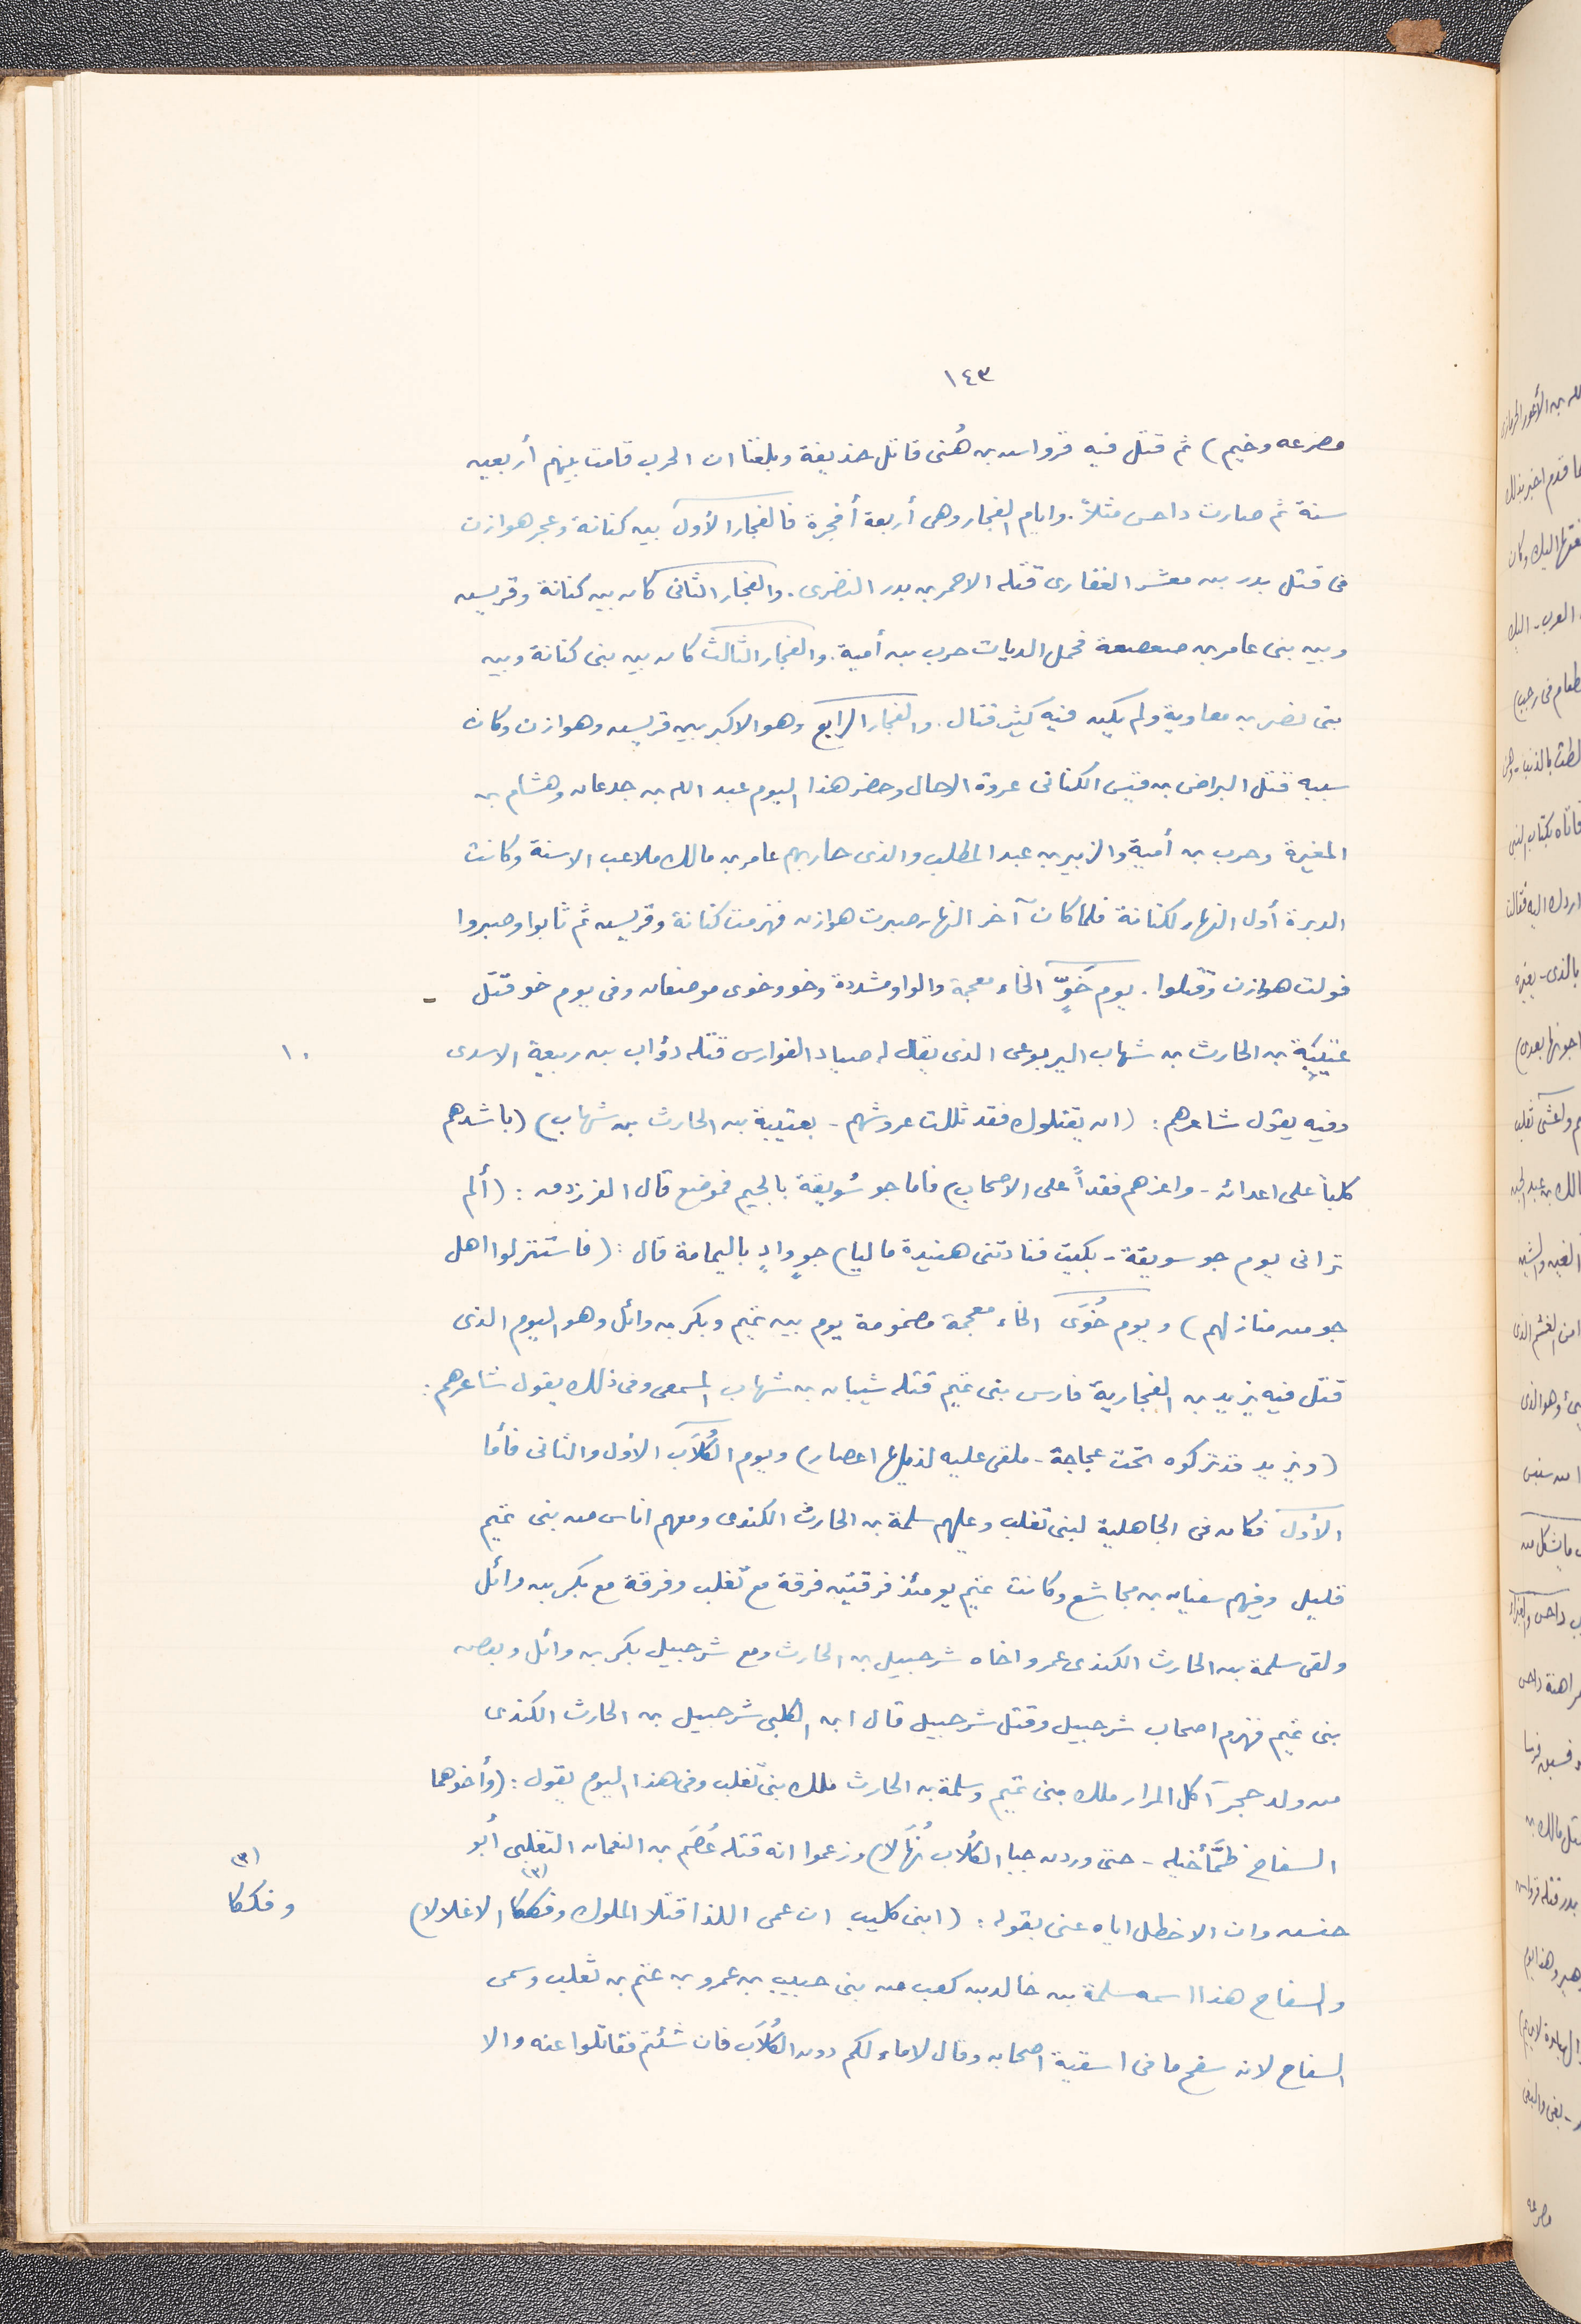 ١٤٣
مصرعه وخيم) ثم قتل فيه قرواس بن هُنى قاتل حذيفة وبلغنا ان الحرب قامت بينهم أربعين
سنة ثم صارت داحس مثلاً. وايام الفجار وهى أربعة أفجرة فالفجار الأول بين كنانة وعجر هوازن
فى قتل بدر بن معشر الغفارى قتله الاحمر بن بدر النضرى. والفجار الثانى كان بين كنانة وقريس
وبين بنى عامر بن صعصعة فحمل الديات حرب بن أمية. والفجار الثالث كان بين بنى كنانة وبين
بنى نضر بن معاوية ولم يكن فيه كثير قتال. والفجار الرابع وهو الاكبر بين قريس وهوازن وكان
سببه قتل البراض بن قيس الكنانى عروة الرحال وحضر هذا اليوم عبد الله بن جدعان وهشام بن
المغيرة وحرب بن أمية والزبير بن عبد المطلب والذى حاربهم عامر بن مالك ملاعب الاسنة وكانت
الدبرة أول النهار لكنانة فلما كان آخر النهار صبرت هوازن فهزمت كنانة وقريس ثم ثابوا وصبروا
فولت هوازن وقتلوا. يوم خَوٍّ الخاء معجمة والواو مشددة وخو وخوى موضعان وفى يوم خو قتل
عتيبة بن الحارث بن شهاب اليربوعى الذى يقال له صياد الفوارس قتله ذؤاب بن ربيعة الاسدى
١٠
وفيه يقول شاعرهم: (ان يقتلوك فقد ثللت عروشهم - بعتيبة بن الحارث بن شهاب) (باشدهم
كلباً على اعدائه - واعزهم فقداً على الاصحاب) فأما جو سُويقة بالجيم فموضع قال الفرزدق: (ألم
ترانى يوم جو سويقة - بكيت فنادتنى هنيدة ماليا) جوٍ وادٍ باليمامة قال: (فاستنزلوا اهل
جو من منازلهم) ويوم خُوَى الخاء معجمة مضمومة يوم بين تميم وبكر بن وائل وهو اليوم الذى
قتل فيه يزيد بن الفجارية فارس بنى تميم قتله شيبان بن شهاب المسمعى وفى ذلك يقول شاعرهم:
(ويزيد قد تركوه تحت عجاجة - ملقى عليه لذيلها اعصار) ويوم الكُلاَب الأول والثانى فأما
الأول فكان فى الجاهلية لبنى تغلب وعليهم سلمة بن الحارث الكندى ومعهم اناس من بنى تميم
قليل وفيهم سفيان بن مجاشع وكانت تميم يومئذ فرقتين فرقة مع تغلب وفرقة مع بكر بن وائل
ولقى سلمة بن الحارث الكندى عمرو اخاه شرحبيل بن الحارث ومع شرحبيل بكر بن وائل وبعض
بنى تميم فهزم اصحاب شرحبيل وقتل شرحبيل قال ابن الكلبى شرحبيل بن الحارث الكندى
من ولد حجر آكل المرار ملك بنى تميم وسلمة بن الحارث ملك بنى تغلب وفى هذا اليوم يقول: (وأخوهما
السفاح ظمَّأ خيله - حتى وردن جبا الكُلاب نُهَالا) وزعموا انه قتله عُصَم بن النعمان التغلبى أبو
حنس وان الاخطل اياه عنى بقوله: (ابنى كليب ان عمى اللذا قتلا الملوك وفككا (٣) الاغلالا)
(٣) وفككا
والسفاح هذا اسمه سلمة بن خالد بن كعب من بنى حبيب بن عمرو بن غنم بن تغلب وسمى
السفاح لانه سفح ما فى اسقية اصحابه وقال لا ماء لكم دون الكُلاَب فان شئتم فقاتلوا عنه والا